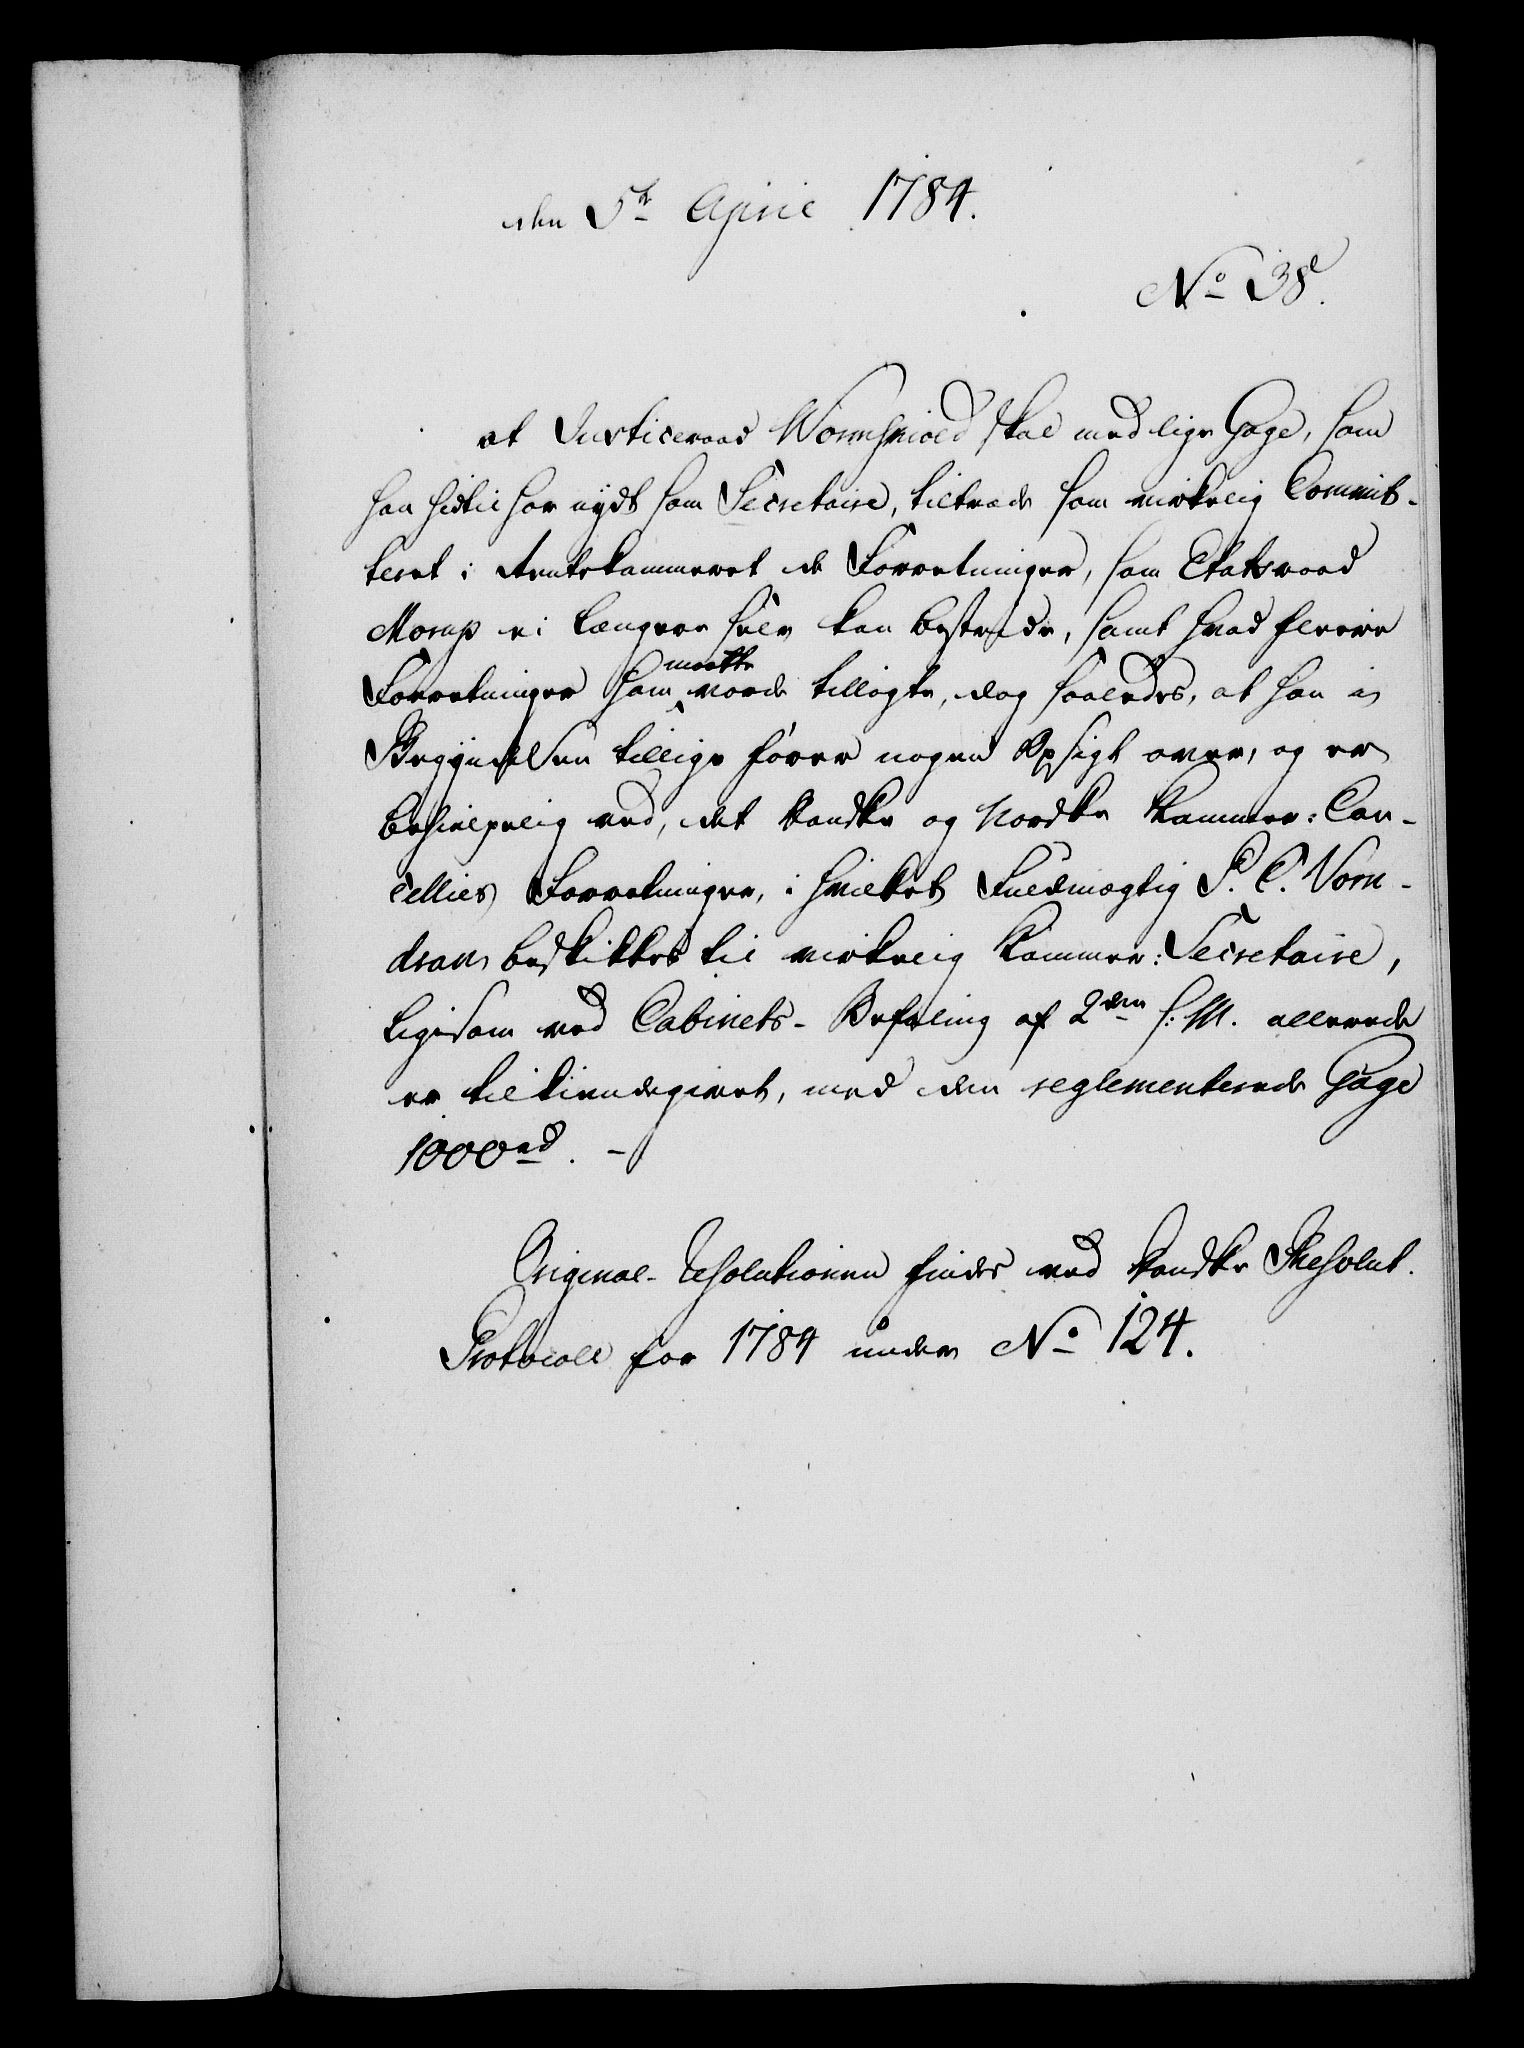 den 5te April 1784.
No 38.
at Justiceraad Wormskiold skal med lige Gage, som
han hidtil har nydt som Secretaire, tiltræde som virkelig Commit-
teret i Rentekammeret de Forretninger, som Etatsraad
Morup ei længere selv kan bestride, samt hvad fleere
Forretninger ham maatte vorde tillagte, dog saaledes, at han i
Begyndelsen tillige fører nogen Opsigt over, og er
behielpelig ved, det danske og Norske Kammer: Can-
cellies Forretninger, i hvilket Fuldmægtig P. C. Vorn-
dran beskikkes til virkelig Kammer: Secretaire,
ligesom ved Cabinets-Befaling af 2den h: M. allerede
er tilkiendegivet, med den reglementerede Gage
1000rd. -
Original-Resolutionen findes ved danske Resolut.
Protocoll for 1784 under No 124.